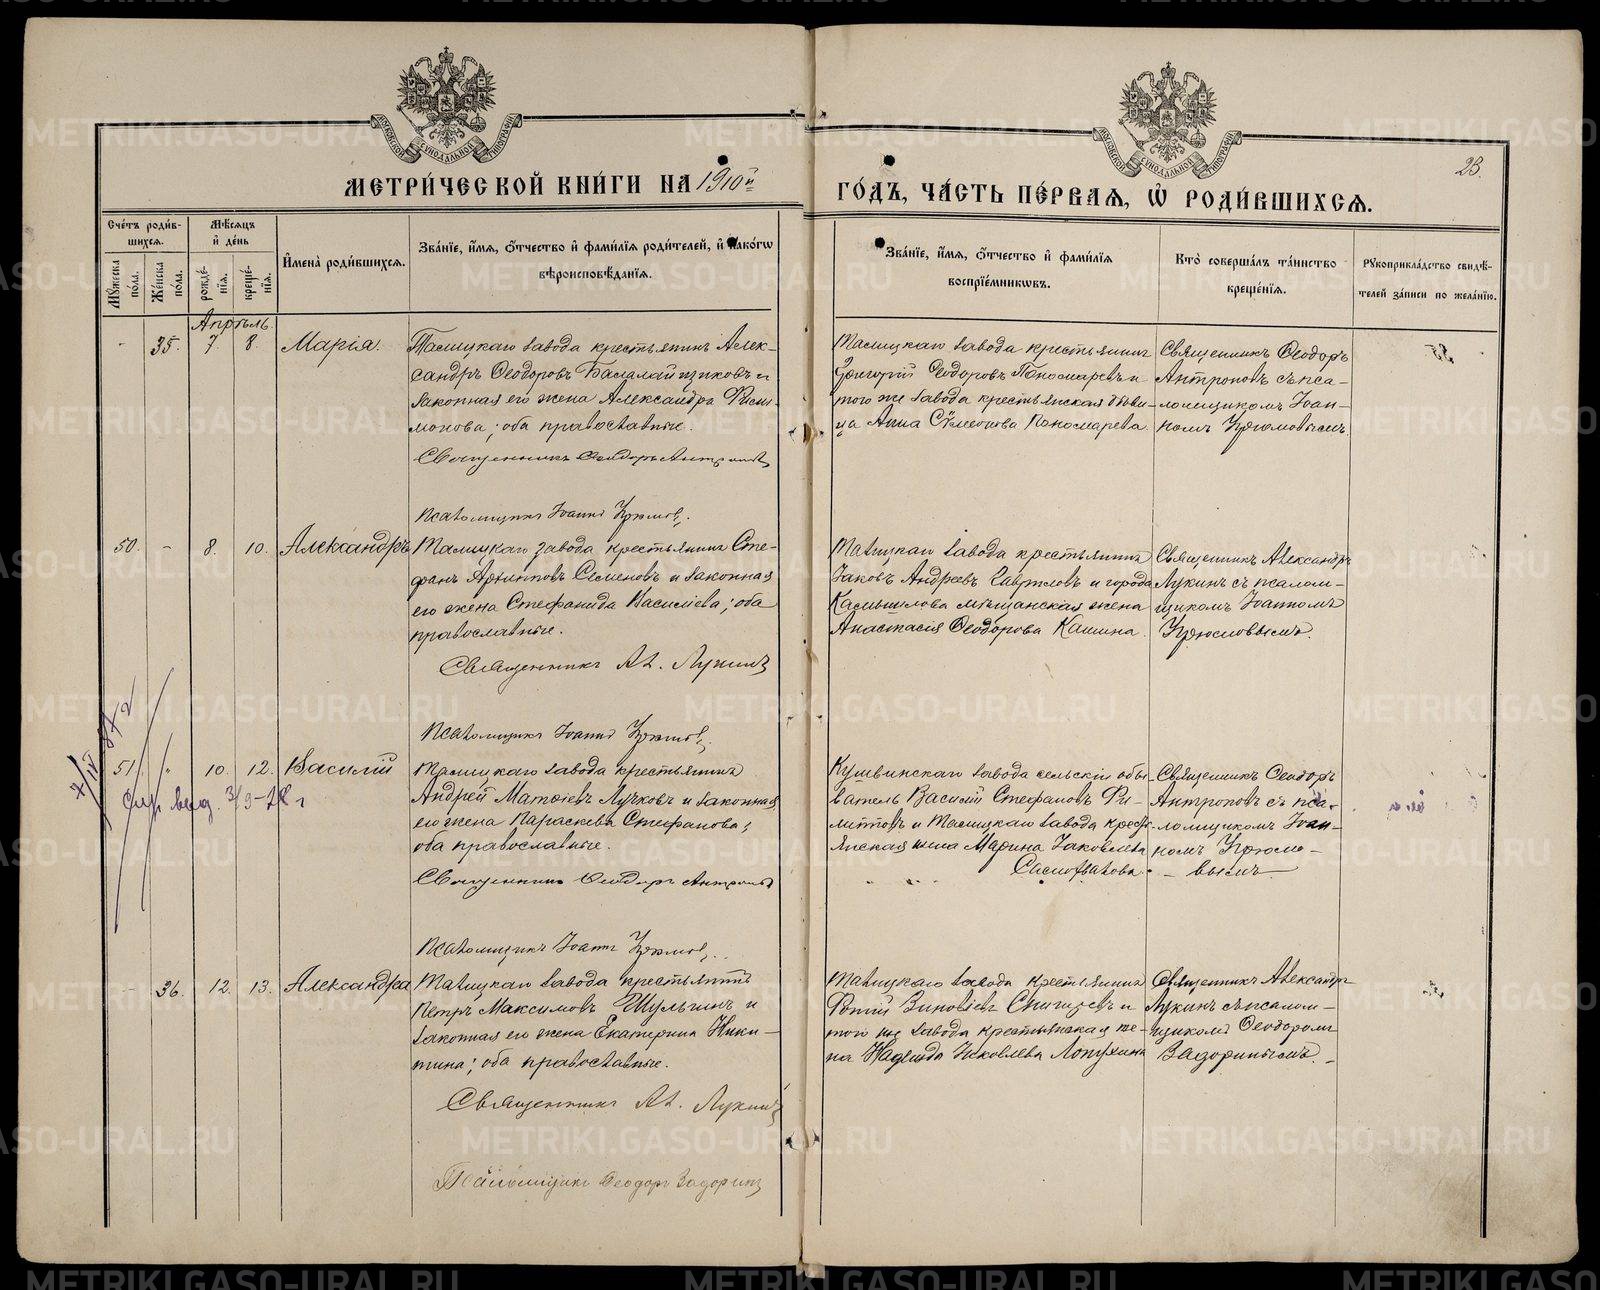 МОСКОВСКОЙ СУНОДАЛЬНОЙ ТИПОГРАФІИ
МОСКОВСКОЙ СУНОДАЛЬНОЙ ТИПОГРАФІИ
23.
МЕТРИ́ЧЕСКОЙ КНИ́ГИ НА 1910й
ГО́ДЪ, ЧА́СТЬ ПЕ́РВАѦ, Ѡ҆ РОДИ́ВШИХСѦ.
Сче́тъ роди́в-
шихсѧ.
Мѣ́сѧцъ
и҆ де́нь
Мꙋ́жеска по́ла.
Же́нска по́ла.
рожде́-
нїѧ.
креще́-
нїѧ.
И҆мена̀ роди́вшихсѧ.
Зва́нїе, и҆́мѧ, ѻ҆́тчество и҆ фами́лїѧ роди́телей, и҆ како́гѡ
вѣроисповѣ́данїѧ.
Зва́нїе, и҆́мѧ, ѻ҆́тчество и҆ фами́лїѧ
воспрїе́мникѡвъ.
Кто̀ соверша́лъ та́инство
креще́нїѧ.
Рꙋкоприкла́дство свидѣ́-
телей за́писи по жела́нїю.
Апрѣль.
35. 7. 8. Марія.
Талицкаго завода крестьянинъ Алек-
сандръ Ѳеодоровъ Балалайщиковъ и
законная его жена Александра
оба православные.
Священникъ Ѳеодоръ Антроповъ
Псаломщикъ Іоаннъ
Талицкаго завода крестьянинъ
Григорій Ѳеодоровъ Пономаревъ и
того же завода крестьянская дѣви-
ца Анна Сѷмеонова Пономарева.
Священникъ Ѳеодоръ
Антроповъ съ пса-
ломщикомъ Іоан-
номъ
50. - 8. 10. Александръ
Талицкаго завода крестьянинъ Сте-
фанъ Архиповъ Семеновъ и законная
его жена Стефанида Васильева; оба
православные.
Священникъ Ал. Лукинъ
Псаломщикъ Іоаннъ
Талицкаго завода крестьянинъ
Іаковъ Андреевъ Гавриловъ и города
Камышлова мѣщанская жена
Анастасія Ѳеодорова Кашина.
Священникъ Александръ
Лукинъ съ псалом-
щикомъ Іоанномъ
51. " 10. 12. Василій
Талицкаго завода крестьянинъ
Андрей Матѳіевъ Лучковъ и законная
его жена Параскева Стефанова;
оба православные.
Священникъ Ѳеодоръ Антроповъ
Псаломщикъ Іоаннъ
Кушвинскаго завода сельскій обы-
ватель Василій Стефановъ Фи-
липповъ и Талицкаго завода кресть-
янская жена Марина Іаковлева
Священникъ Ѳеодоръ
Антроповъ съ пса-
ломщикомъ Іоан-
номъ
вымъ
- 36. 12. 13. Александра
Талицкаго завода крестьянинъ
Петръ Максимовъ Шульгинъ и
законная его жена Екатерина Ники-
тина; оба православные.
Священникъ Ал. Лукинъ
Псаломщикъ Ѳеодоръ Задоринъ
Талицкаго завода крестьянинъ
Фотій Зиновіевъ Снигиревъ и
того же завода крестьянская же-
на Надежда Іаковлева Лопухина
Священникъ Александръ
Лукинъ съ псалом-
щикомъ Ѳеодоромъ
Задоринымъ.
METRIKI.GASO-URAL.RU